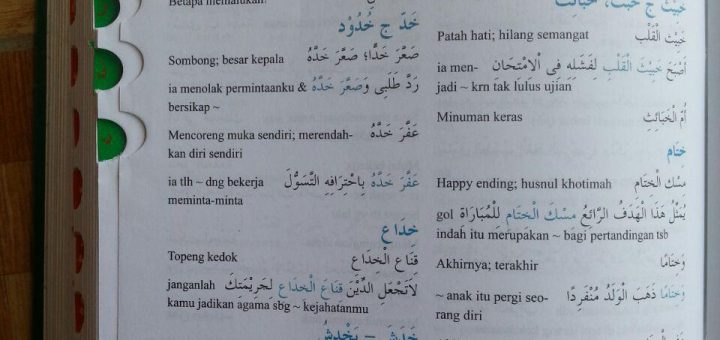 Betapa memalukan!
خَدّ ج خُدُوْد
Sombong; besar kepala صَعَّرَ خَدًّا؛ صَعَّرَ خَدَّهُ
ia menolak permintaanku & رَدَّ طَلَبِى وَصَعَّرَ خَدَّهُ
bersikap ~
Mencoreng muka sendiri; merendah- عَفَّرَ خَدَّهُ
kan diri sendiri
ia tlh ~ dng bekerja عَفَّرَ خَدَّهُ بِاحْتِرَافِهِ التَّسَوُّلَ
meminta-minta
خِدَاع
Topeng kedok قِنَاع الْخِدَاع
janganlah لَاتَجْعَلِ الدِّيْنَ قِنَاعَ الْخِدَاعِ لِجَرِيْمَتِكَ
kamu jadikan agama sbg ~ kejahatanmu
خَدَشَ – يَخْدِشُ
خَبِيْث ج خُبُث، خَبَائِث
Patah hati; hilang semangat خَبِيْث الْقَلْب
ia men- أَصْبَحَ خَبِيْثَ الْقَلْبِ لِفَشَلِهِ فِى الْاِمْتِحَانِ
jadi ~ krn tak lulus ujian
Minuman keras أُمّ الْخَبَائِثِ
خِتَام
Happy ending; husnul khotimah مِسْك الْخِتَام
gol يُمَثِّلُ هَذَا الْهَدَفُ الرَّائِعُ مِسْكَ الْخِتَامِ لِلْمُبَارَاةِ
indah itu merupakan ~ bagi pertandingan tsb
Akhirnya; terakhir وَخِتَامًا
~ anak itu pergi seo- وَخِتَامًا ذَهَبَ الْوَلَدُ مُنْفَرِدًا
rang diri